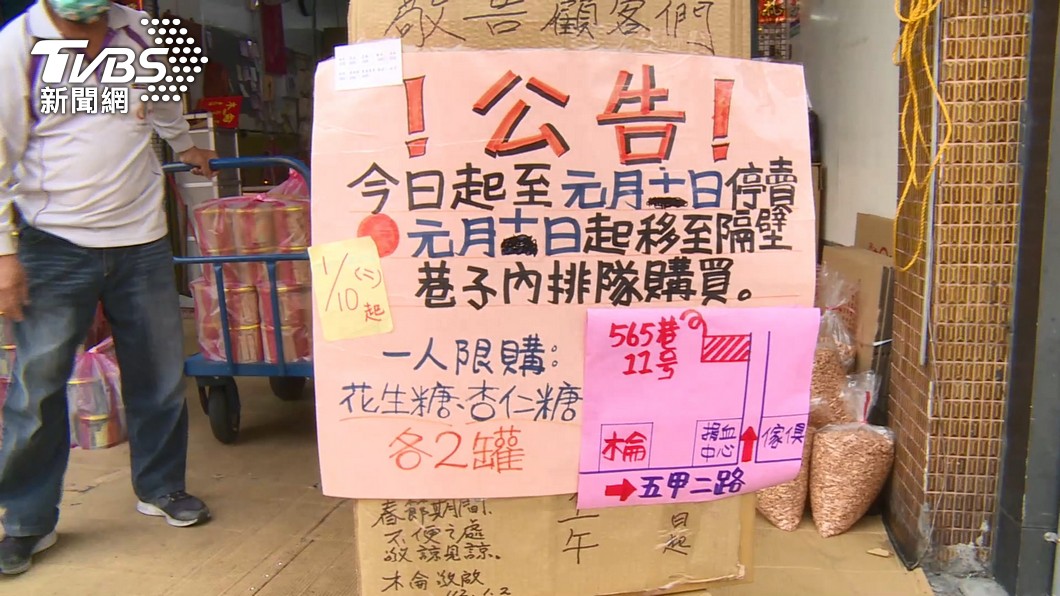 TVBS
新聞網
敬告顧客們
！公告！
今日起至元月十日停賣
元月十日起移至隔壁
巷子內排隊購買。
1/10(二)起
一人限購：
花生糖、杏仁糖
各2罐
565巷
11号
木侖
捐血
中心
傢俱
五甲二路
春節期間，
不便之處
敬請見諒。
木侖敬啟
午
日
起